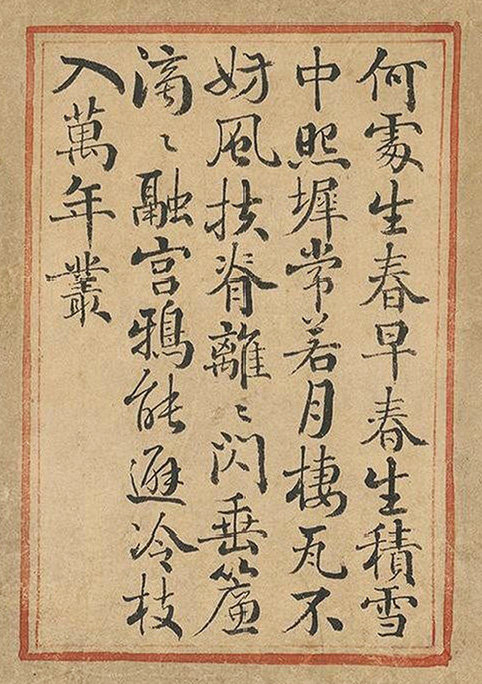 何處生春早春生積雪
中照墀常若月棲瓦不
妨風扶脊離〻閃垂簷
滴〻融宮鴉能遜冷枝
入萬年叢